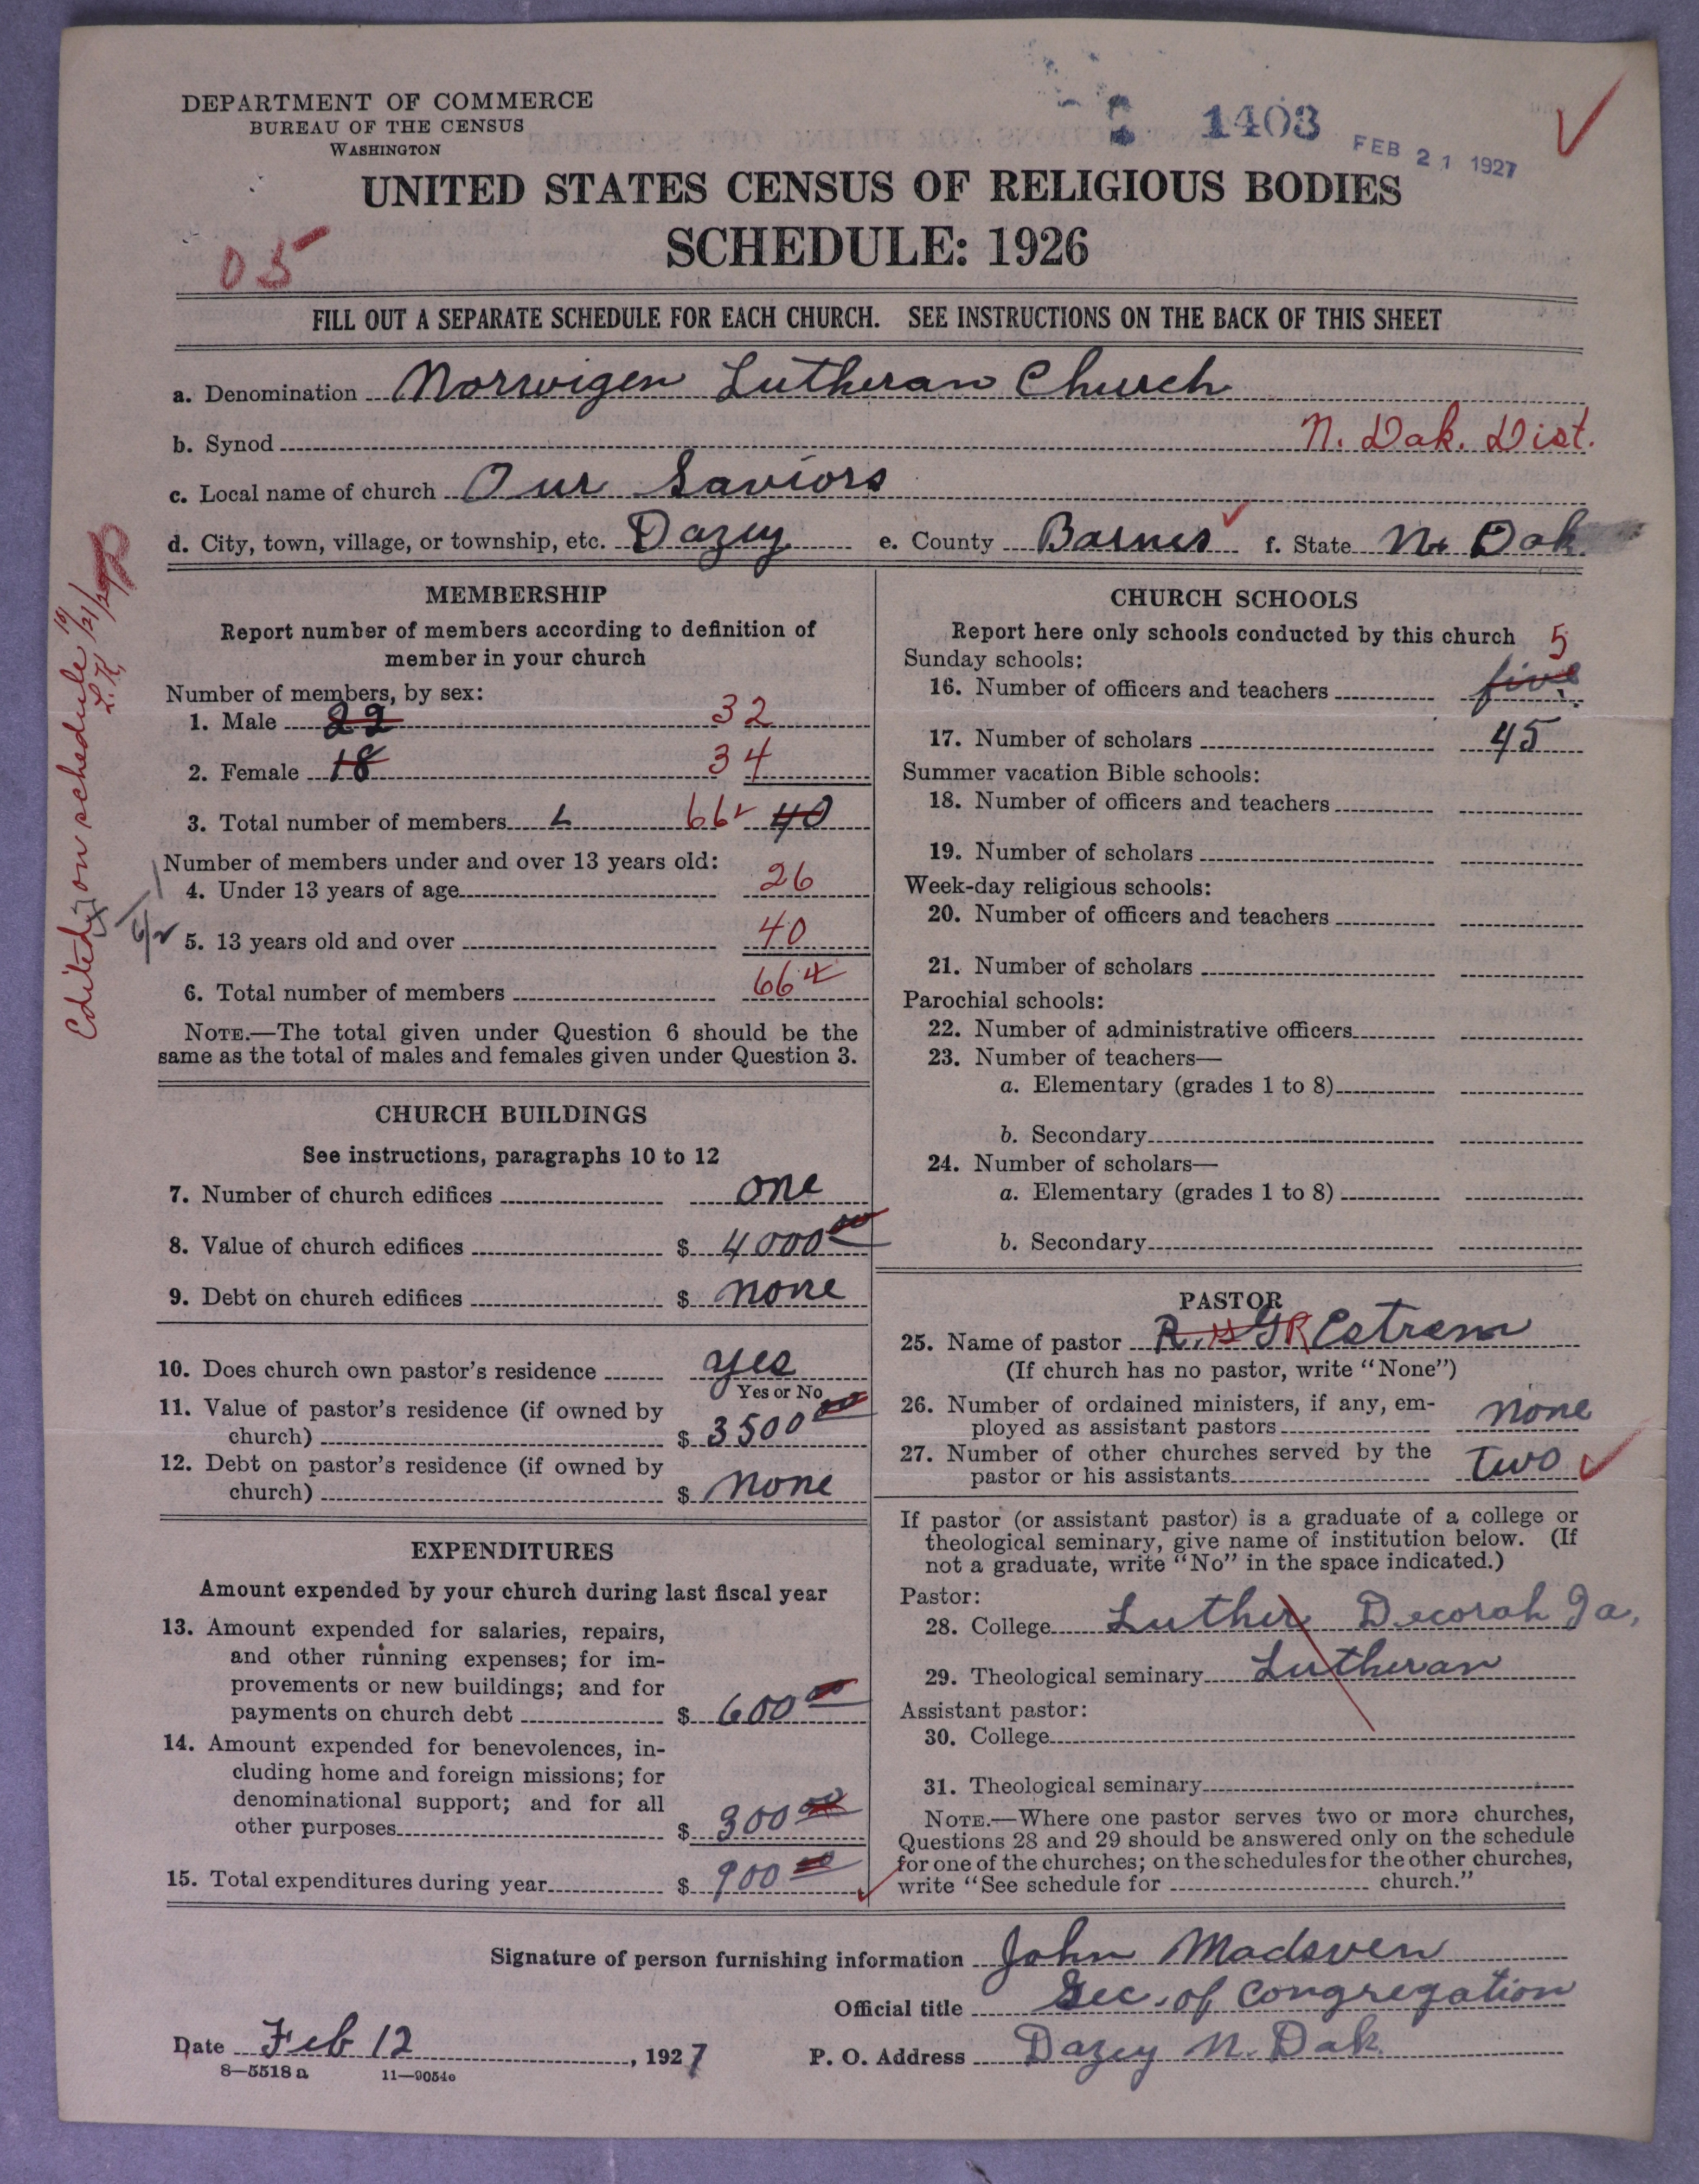 DEPARTMENT OF COMMERCE
BUREAU OF THE CENSUS
WASHINGTON
1403
FEB 21 1927
UNITED STATES CENSUS OF RELIGIOUS BODIES
SCHEDULE: 1926
05
FILL OUT A SEPARATE SCHEDULE FOR EACH CHURCH. SEE INSTRUCTIONS ON THE BACK OF THIS SHEET
a. Denomination Norwigen Lutheran Church
b. Synod N. Dak. Dist.
c. Local name of church Our Saviors
d. City, town, village, or township, etc. Dazey e. County Barnes f. State N. Dak.
Edited on schedule L.K.
MEMBERSHIP
Report number of members according to definition of
member in your church
Number of members, by sex:
1. Male 22 32
2. Female 18 34
3. Total number of members 66 40
Number of members under and over 13 years old:
4. Under 13 years of age 26
5. 13 years old and over 40
6. Total number of members 66
NOTE.—The total given under Question 6 should be the
same as the total of males and females given under Question 3.
CHURCH BUILDINGS
See instructions, paragraphs 10 to 12
7. Number of church edifices one
8. Value of church edifices $ 4000 00
9. Debt on church edifices $ none
10. Does church own pastor's residence yes
Yes or No
11. Value of pastor's residence (if owned by
church) $ 3500 00
12. Debt on pastor's residence (if owned by
church) $ none
EXPENDITURES
Amount expended by your church during last fiscal year
13. Amount expended for salaries, repairs,
and other running expenses; for im-
provements or new buildings; and for
payments on church debt $ 600 00
14. Amount expended for benevolences, in-
cluding home and foreign missions; for
denominational support; and for all
other purposes $ 300 00
15. Total expenditures during year $ 900 00
CHURCH SCHOOLS
Report here only schools conducted by this church
Sunday schools:
16. Number of officers and teachers five 5
17. Number of scholars 45
Summer vacation Bible schools:
18. Number of officers and teachers
19. Number of scholars
Week-day religious schools:
20. Number of officers and teachers
21. Number of scholars
Parochial schools:
22. Number of administrative officers
23. Number of teachers—
a. Elementary (grades 1 to 8)
b. Secondary
24. Number of scholars—
a. Elementary (grades 1 to 8)
b. Secondary
PASTOR
25. Name of pastor R. H G R Estrem
(If church has no pastor, write "None")
26. Number of ordained ministers, if any, em-
ployed as assistant pastors none
27. Number of other churches served by the
pastor or his assistants Two
If pastor (or assistant pastor) is a graduate of a college or
theological seminary, give name of institution below. (If
not a graduate, write "No" in the space indicated.)
Pastor:
28. College Luther Decorah Ia,
29. Theological seminary Lutheran
Assistant pastor:
30. College
31. Theological seminary
NOTE.—Where one pastor serves two or more churches,
Questions 28 and 29 should be answered only on the schedule
for one of the churches; on the schedules for the other churches,
write "See schedule for church."
Signature of person furnishing information John Madsven
Official title Sec. of Congregation
Date Feb 12, 1927 P. O. Address Dazey N. Dak.
8—5518 a 11—9054c